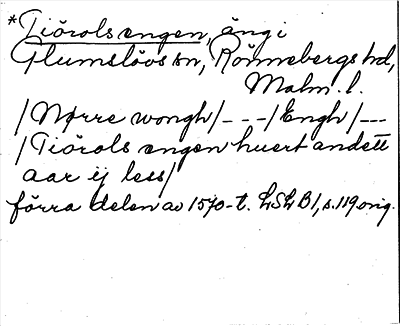 *Tiörols engen, äng i
Glumslövs sn, Rönnebergs hd,
Malm. l.
/Nørre wongh/---/Engh/---
/Tiörols engen huert andett
aar ij less/
förra delen av 1570-t. LSLB1, s. 119 orig.